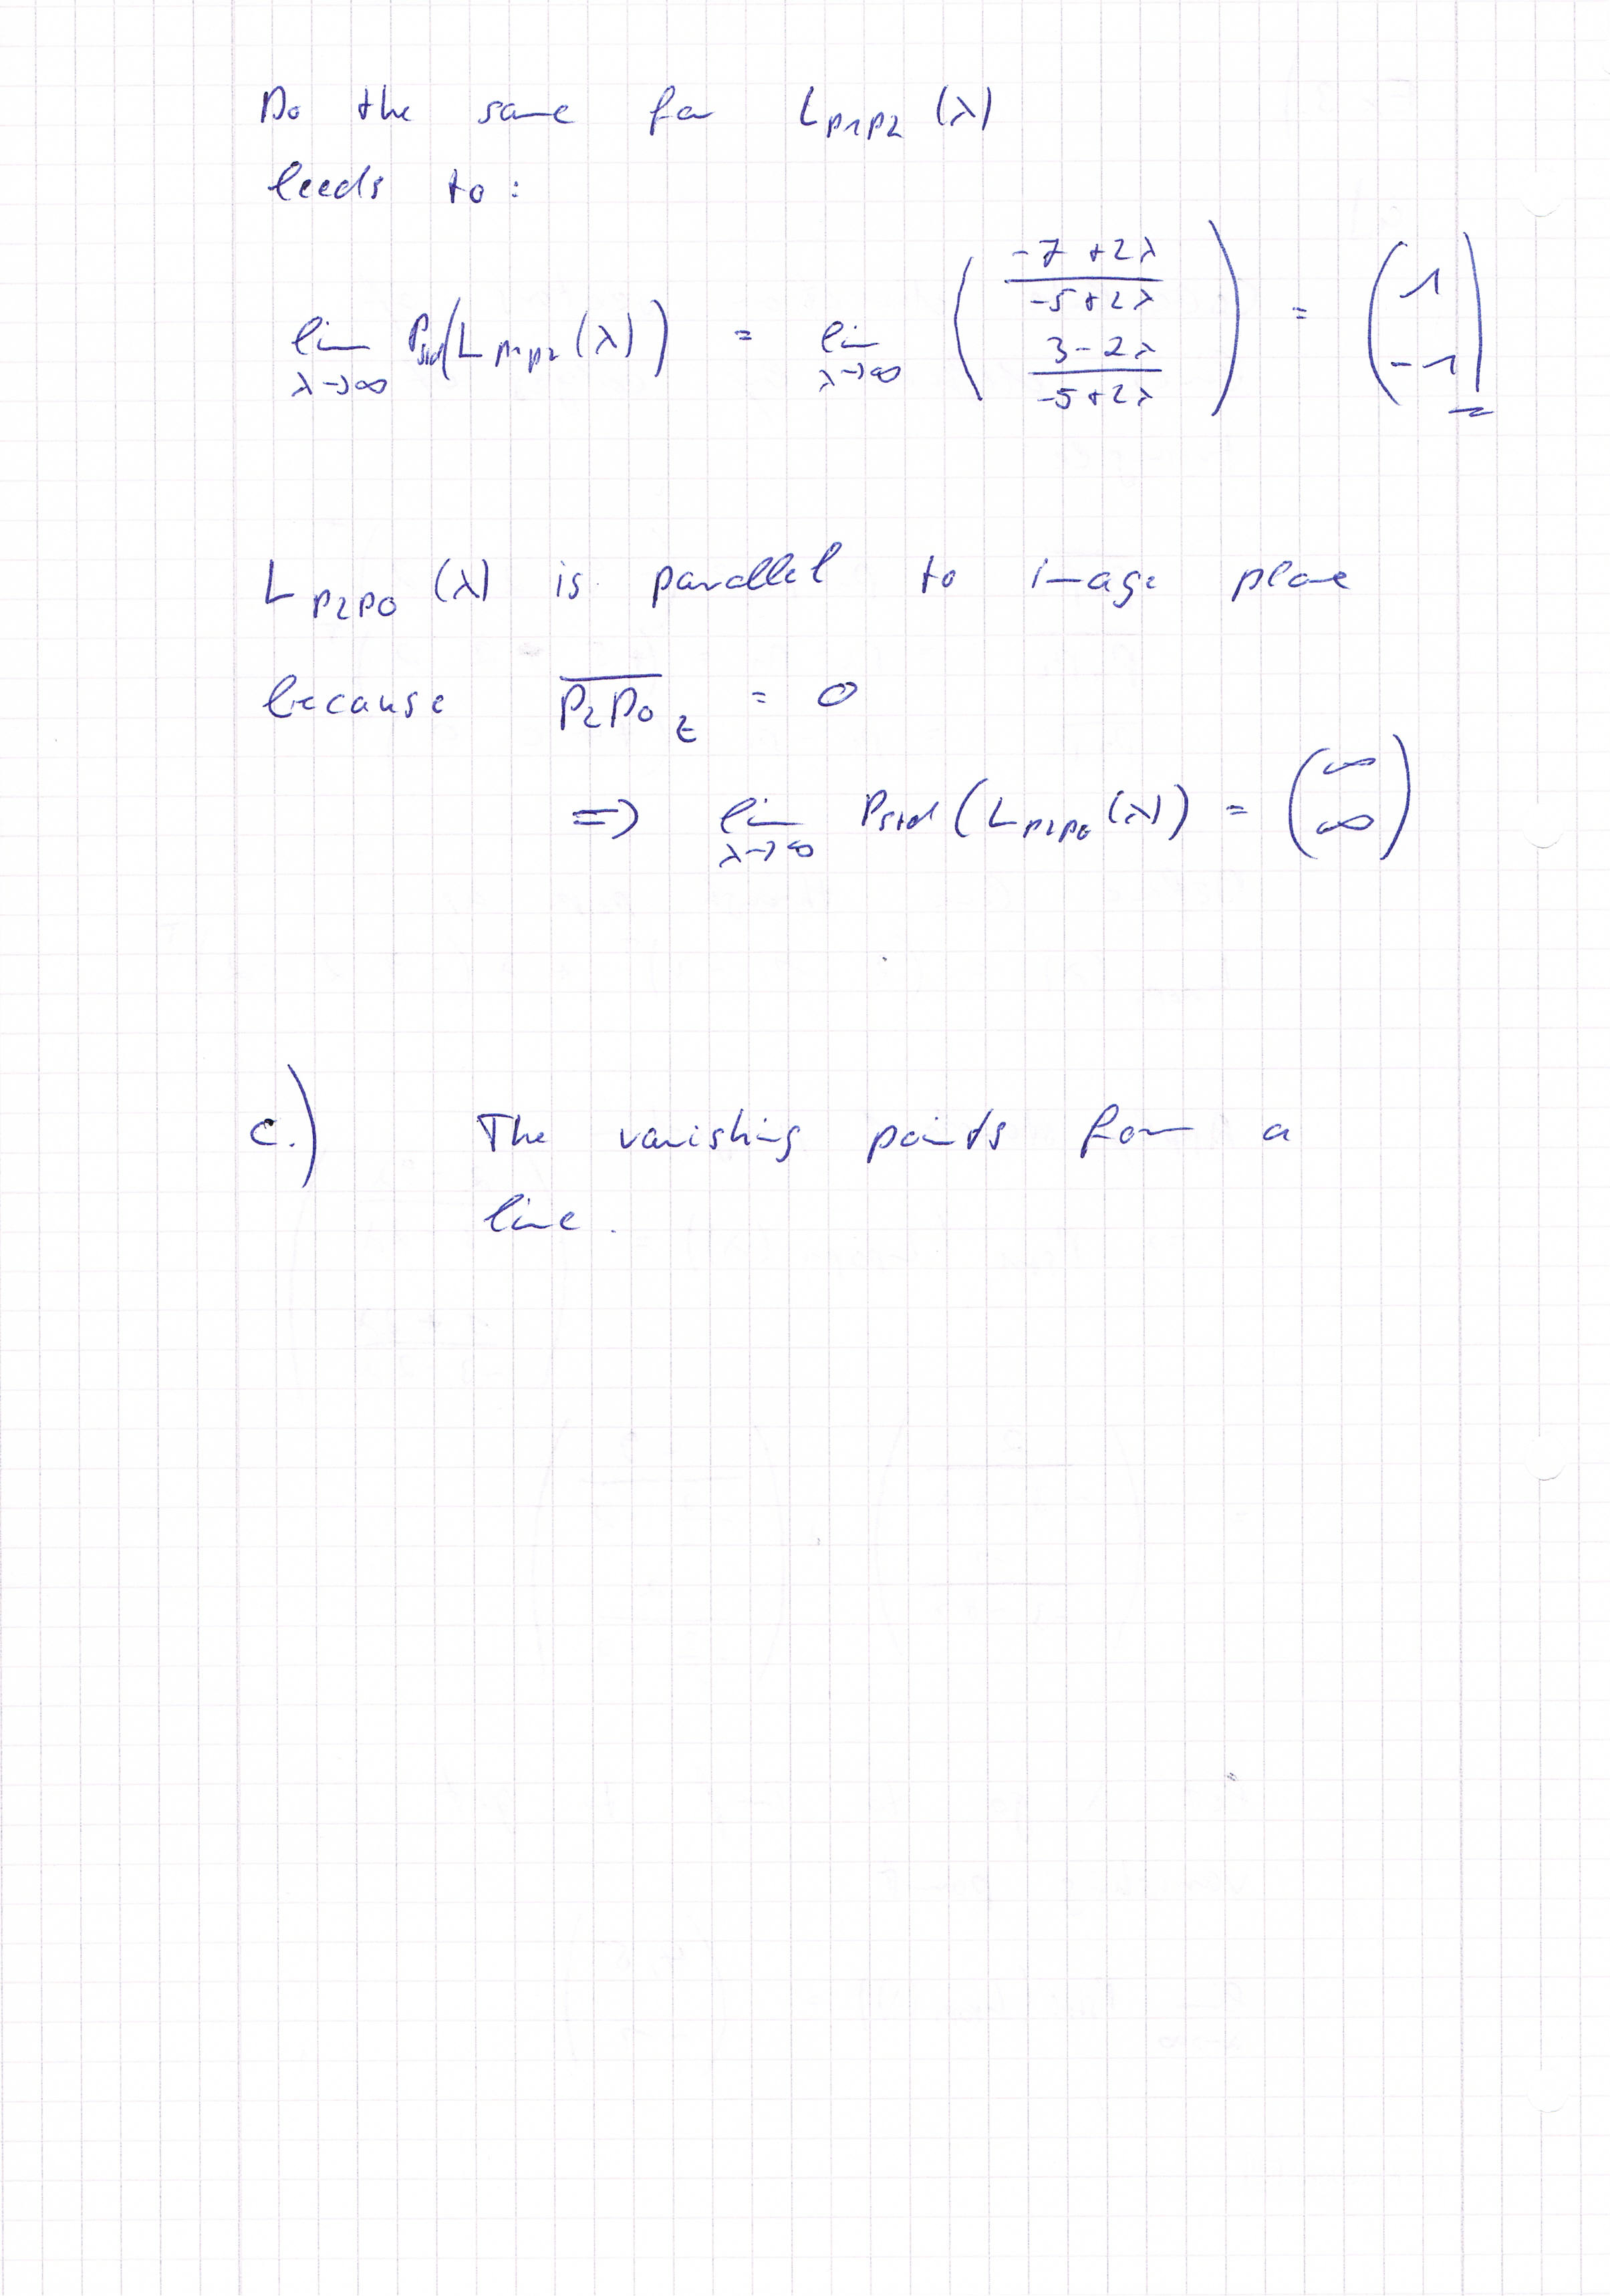 Do the same for L_{P1P2} (λ)
leeds to:
lim_{λ→∞} P_{std}(L_{P1P2} (λ)) = lim_{λ→∞} ( (-7 + 2λ)/(-5 + 2λ) , (3 - 2λ)/(-5 + 2λ) ) = ( 1 , -1 )
L_{P2P0} (λ) is parallel to image plane
because \overline{P2P0}_z = 0
=> lim_{λ→∞} P_{std} (L_{P2P0} (λ)) = ( ∞ , ∞ )
c.) The vanishing points form a
line.